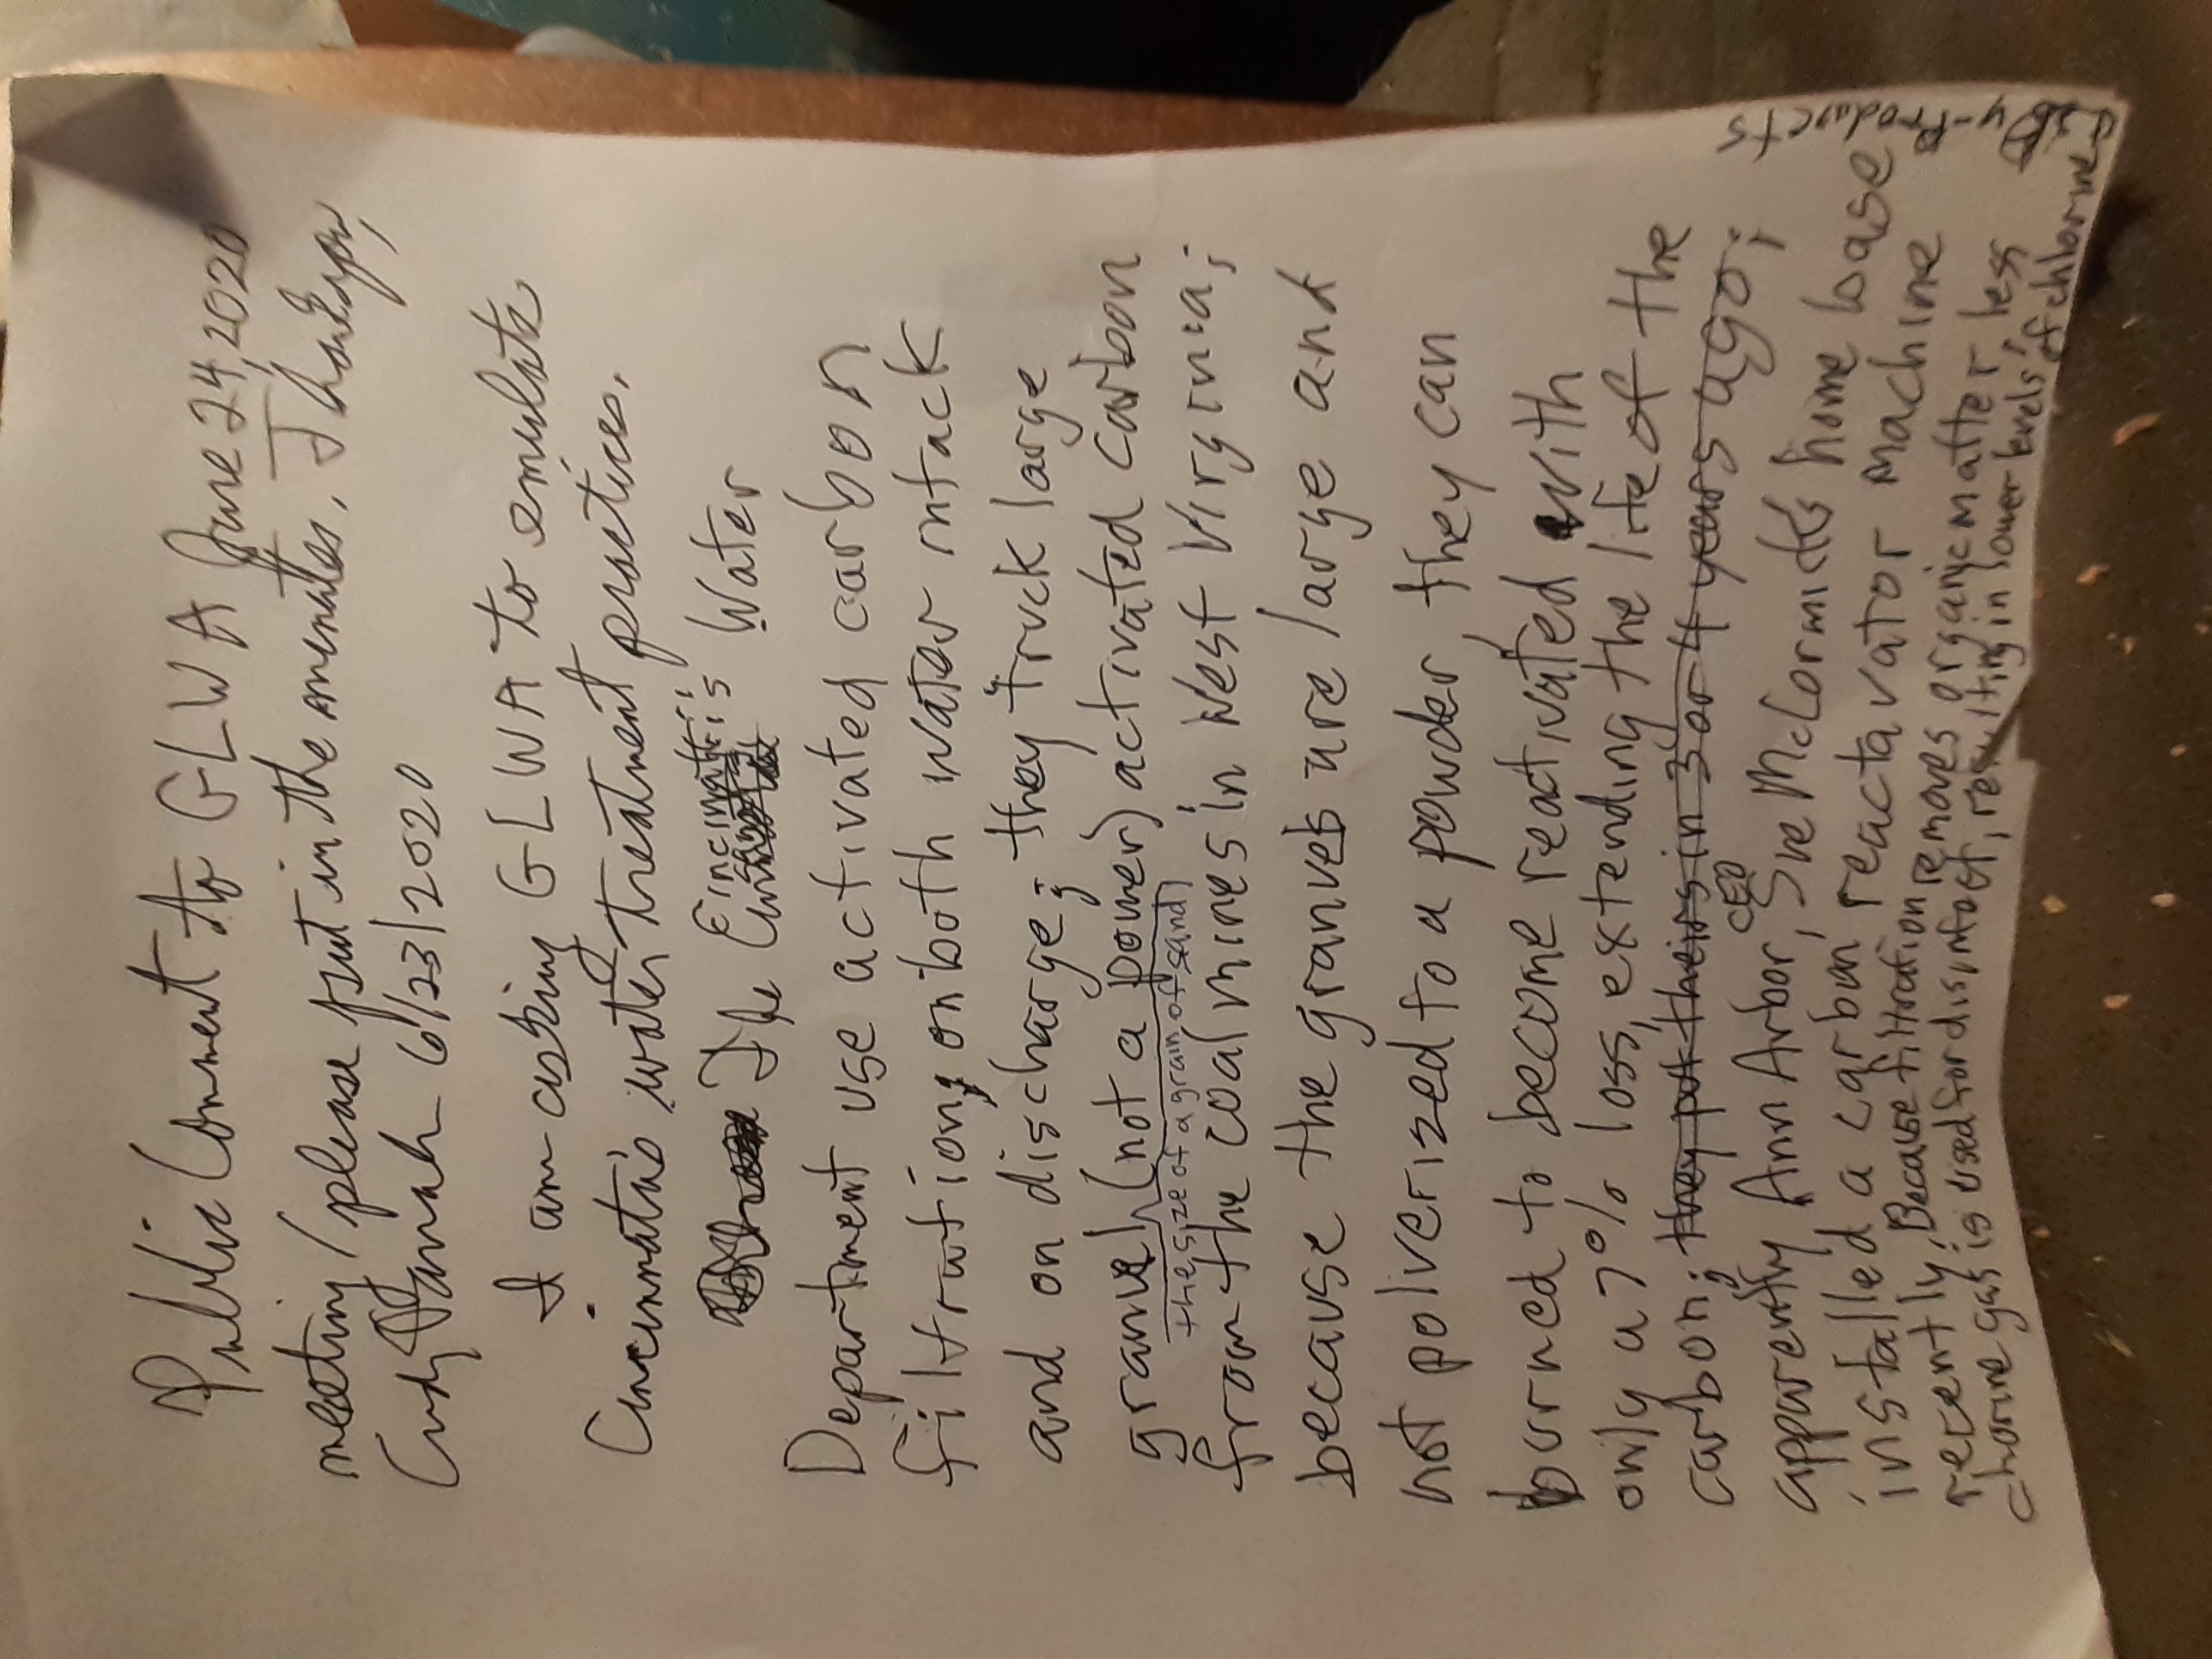 Public Comment to GLWA June 24, 2020
meeting / please put in the minutes, Thank you,
Cindy 6/23/2020
I am asking GLWA to emulate
Cincinnati's water treatment practices.
The Cincinnati's Water
Department use activated carbon
filtration, on both water intack
and on discharge; they truck large
granuel (not a power) activated carbon
the size of a grain of sand
from the coal mines in West Virginia;
because the granuels are large and
not polverized to a powder, they can
burned to become reactivated with
only a 7% loss, extending the life of the
carbon; they put theirs in 3 or 4 years ago;
apparently Ann Arbor, CEO Sue McCormick's home base
installed a carbon reactavator machine
recently, Because filtration removes organic matter less
chorine gas is used for disinfect, resulting in lower levels, of chlorine
By-Products